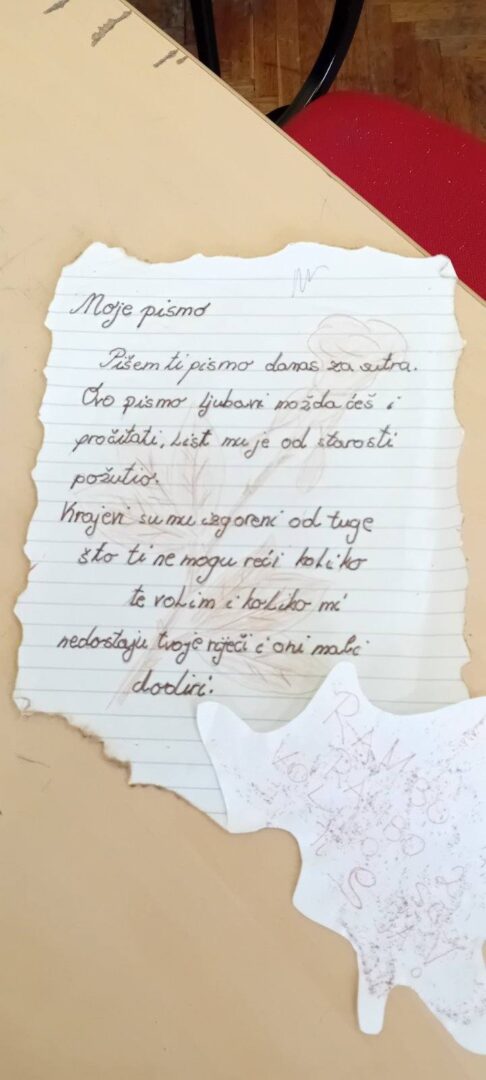 Moje pismo
Pišem ti pismo danas za sutra.
Ovo pismo ljubavi možda ćeš i
pročitati, List mu je od starosti
požutio.
Krajevi su mu izgoreni od tuge
što ti ne mogu reći koliko
te volim i koliko mi
nedostaju tvoje riječi i oni mali
dodiri.